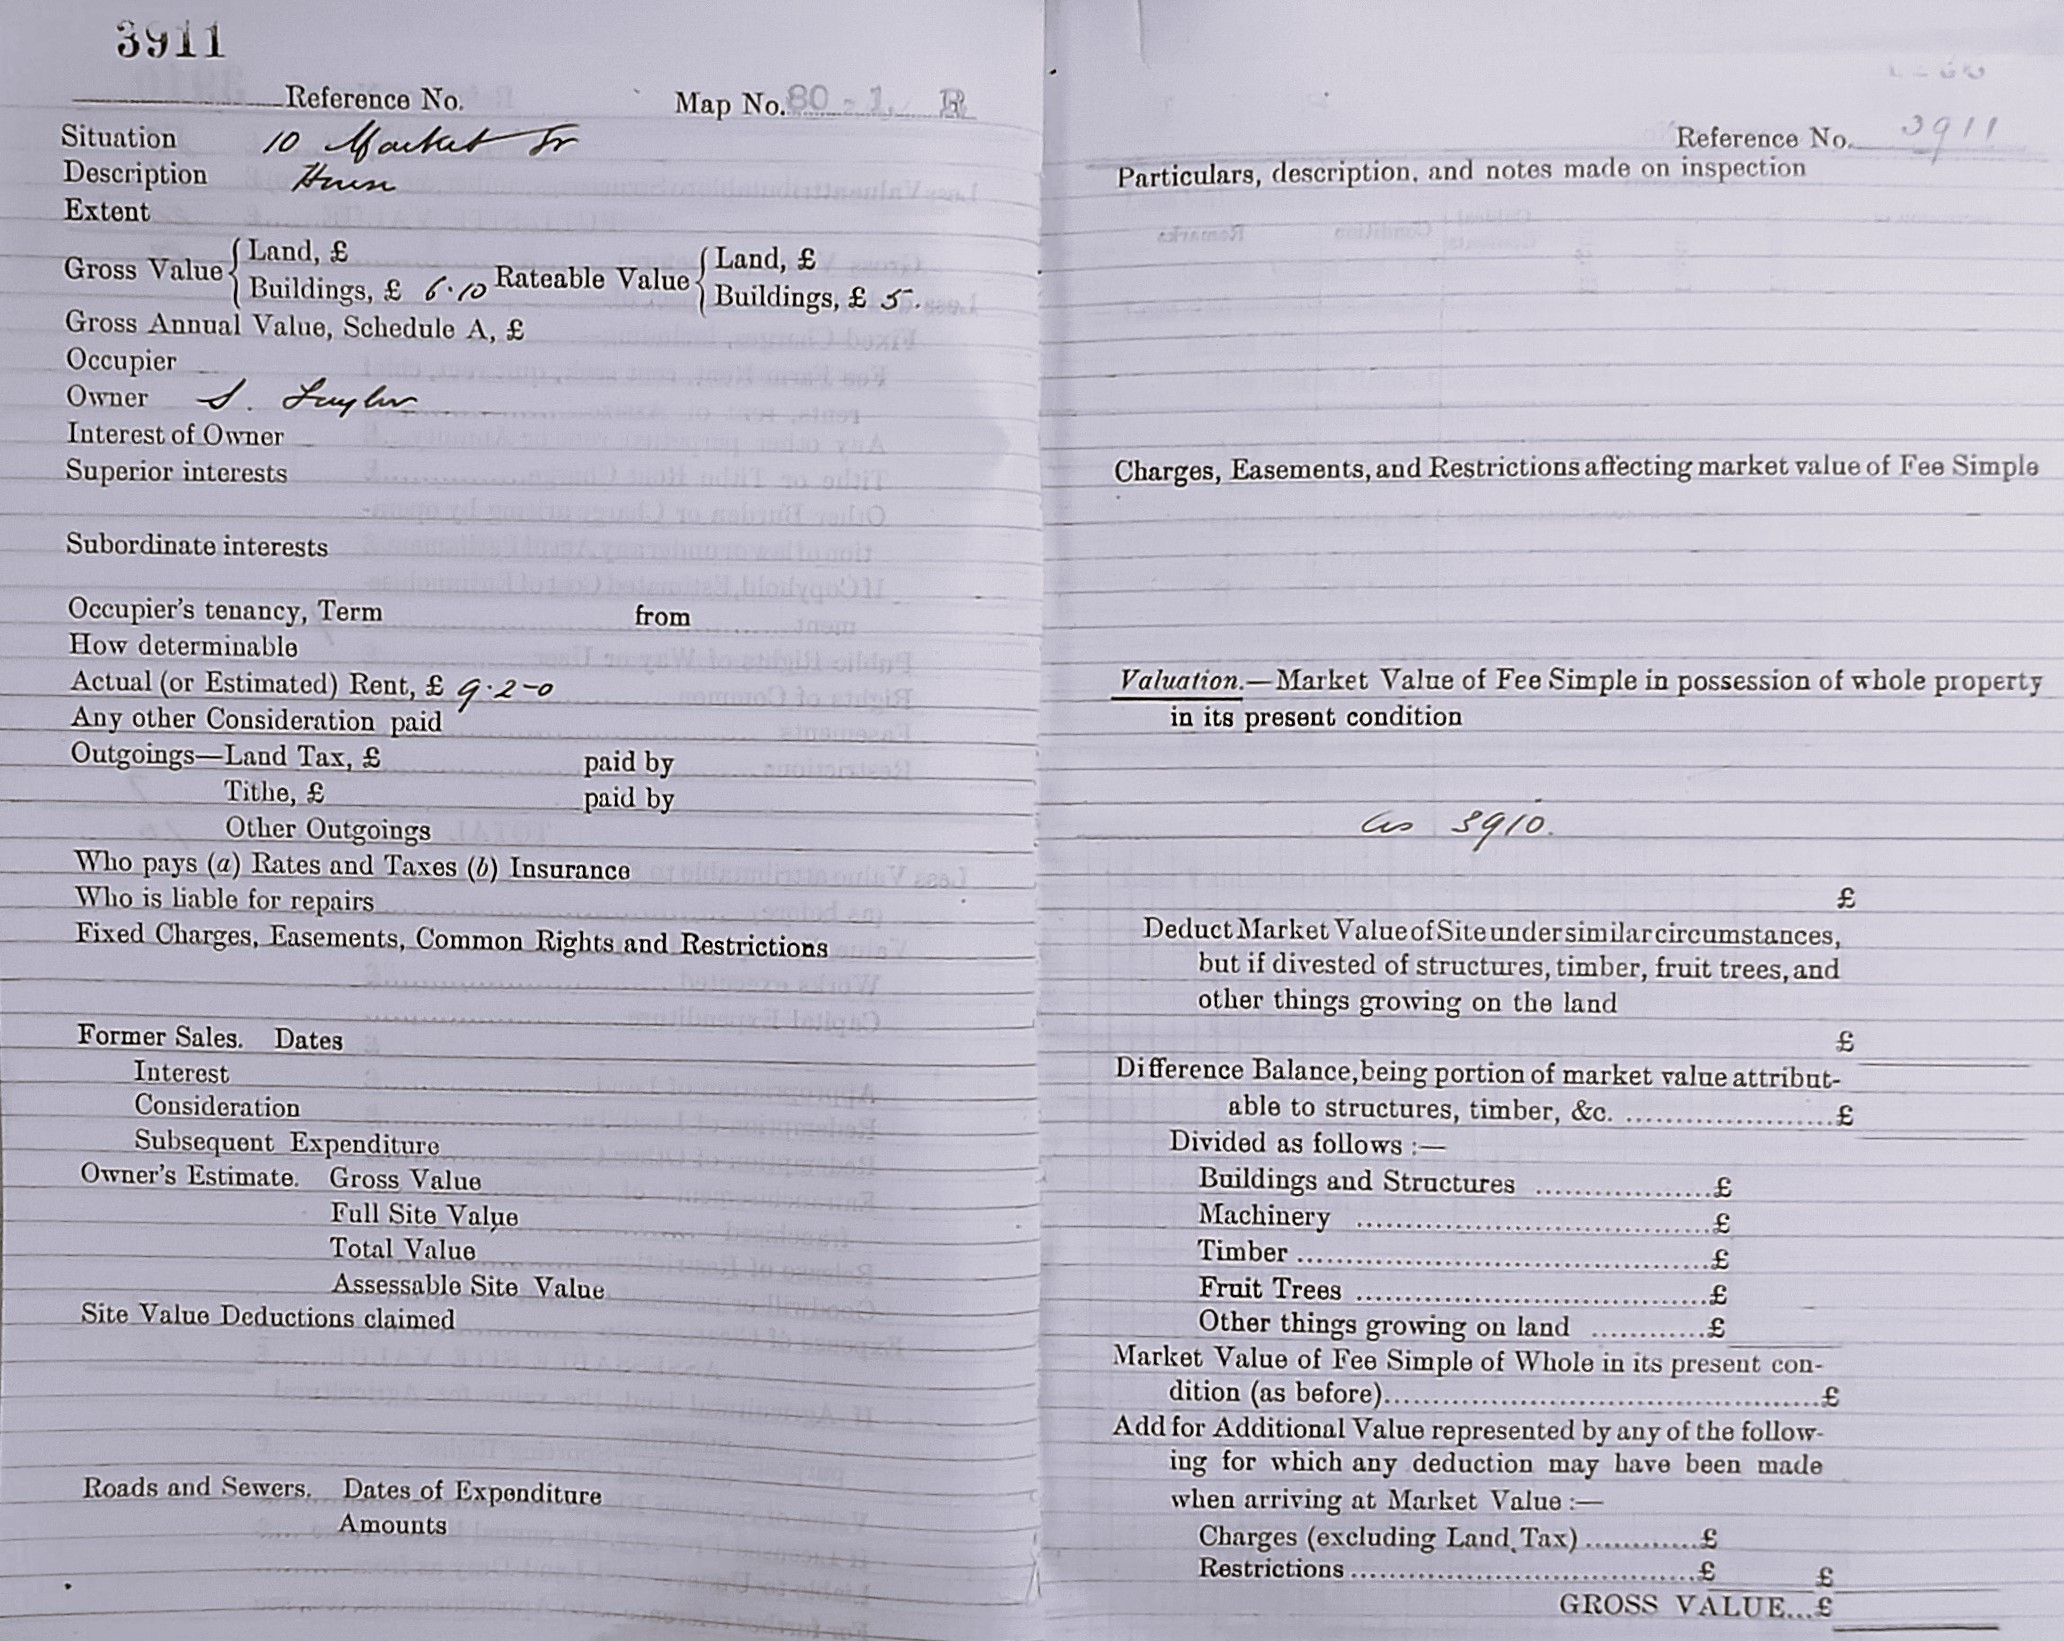 3911
Reference No. Map No. 80-1. R
Situation 10 Market St
Description House
Extent
Gross Value { Land, £
Buildings, £ 6.10 Rateable Value { Land, £
Buildings, £ 5.
Gross Annual Value, Schedule A, £
Occupier
Owner S. Taylor
Interest of Owner
Superior interests
Subordinate interests
Occupier's tenancy, Term from
How determinable
Actual (or Estimated) Rent, £ 9.2-0
Any other Consideration paid
Outgoings—Land Tax, £ paid by
Tithe, £ paid by
Other Outgoings
Who pays (a) Rates and Taxes (b) Insurance
Who is liable for repairs
Fixed Charges, Easements, Common Rights and Restrictions
Former Sales. Dates
Interest
Consideration
Subsequent Expenditure
Owner's Estimate. Gross Value
Full Site Value
Total Value
Assessable Site Value
Site Value Deductions claimed
Roads and Sewers. Dates of Expenditure
Amounts
Reference No. 3911
Particulars, description, and notes made on inspection
Charges, Easements, and Restrictions affecting market value of Fee Simple
Valuation.—Market Value of Fee Simple in possession of whole property
in its present condition
as 3910.
£
Deduct Market Value of Site under similar circumstances,
but if divested of structures, timber, fruit trees, and
other things growing on the land
£
Difference Balance, being portion of market value attribut-
able to structures, timber, &c. ..................... £
Divided as follows :—
Buildings and Structures .................. £
Machinery .................................... £
Timber .......................................... £
Fruit Trees .................................... £
Other things growing on land ............ £
Market Value of Fee Simple of Whole in its present con-
dition (as before)............................................. £
Add for Additional Value represented by any of the follow-
ing for which any deduction may have been made
when arriving at Market Value :—
Charges (excluding Land Tax) ............ £
Restrictions ..................................... £ £
GROSS VALUE... £